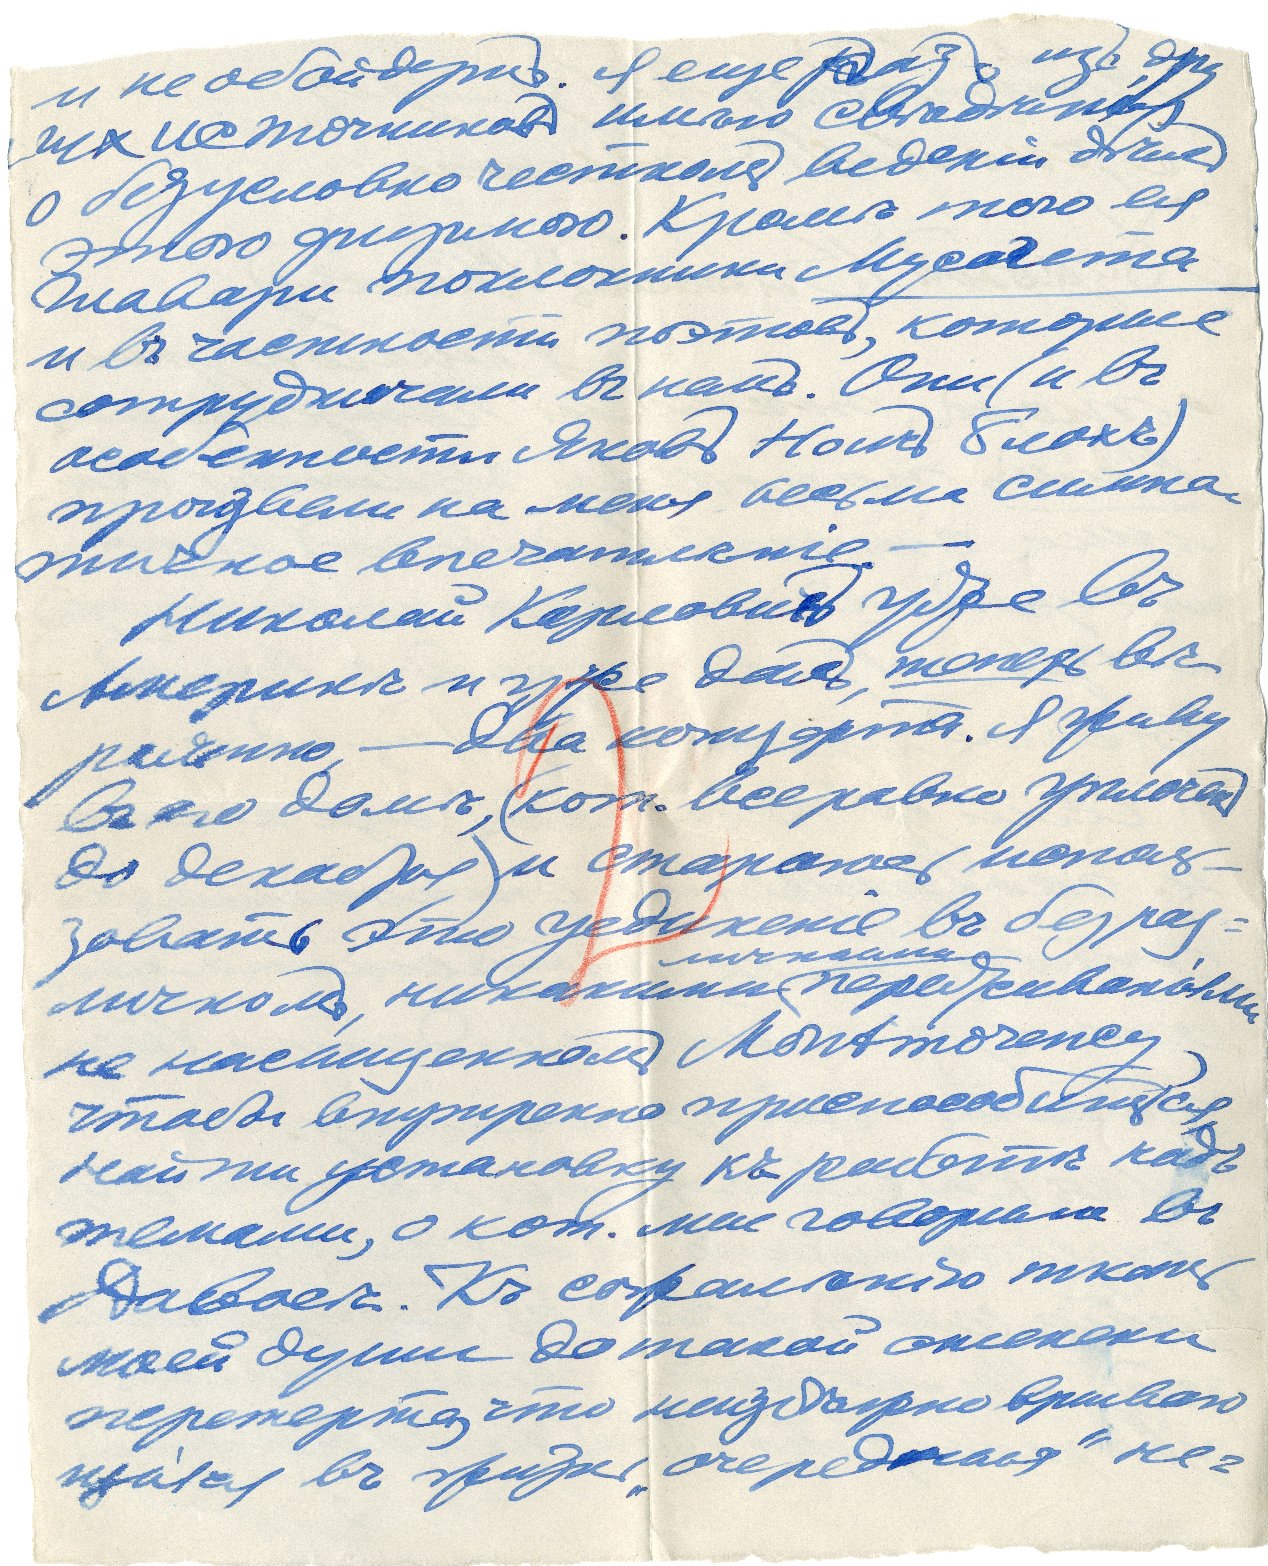 и не обойдутъ. Я еще разъ изъ дру
гихъ источниковъ имѣю свѣдѣнiя
о безусловно честномъ веденiи дѣла
этою фирмою. Кромѣ того ея
главари поклонники Мусагета
и въ частности поэтовъ, которые
сотрудничали въ немъ. Они (и въ
особенности Яковъ Ноевъ Блохъ)
произвели на меня весьма симпа-
тичное впечатлѣнiе —
Николай Карловичъ уже въ
Америкѣ и уже далъ, теперь въ
— два концерта. Я живу
въ его домѣ, (кот. всеравно уплоченъ
до декабря) и стараюсь исполь-
зовать это уединенiе въ безраз=
личномъ, никакими личными переживаньями
не насыщенномъ Montmorency
чтобы внутренно приспособиться
найти установку къ работѣ надъ
темами, о кот. мы говорили въ
Давосѣ. Къ сожалѣнiю ткань
моей души до такой степени
перетерта, что неизбѣжно врываю
щiяся въ жизнь „очередныя" не=